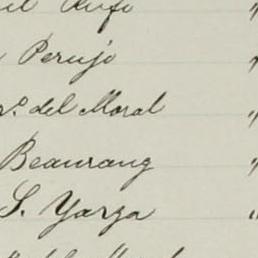 Rufo "
Perujo "
del Moral "
Beaurang "
S. Yarza "